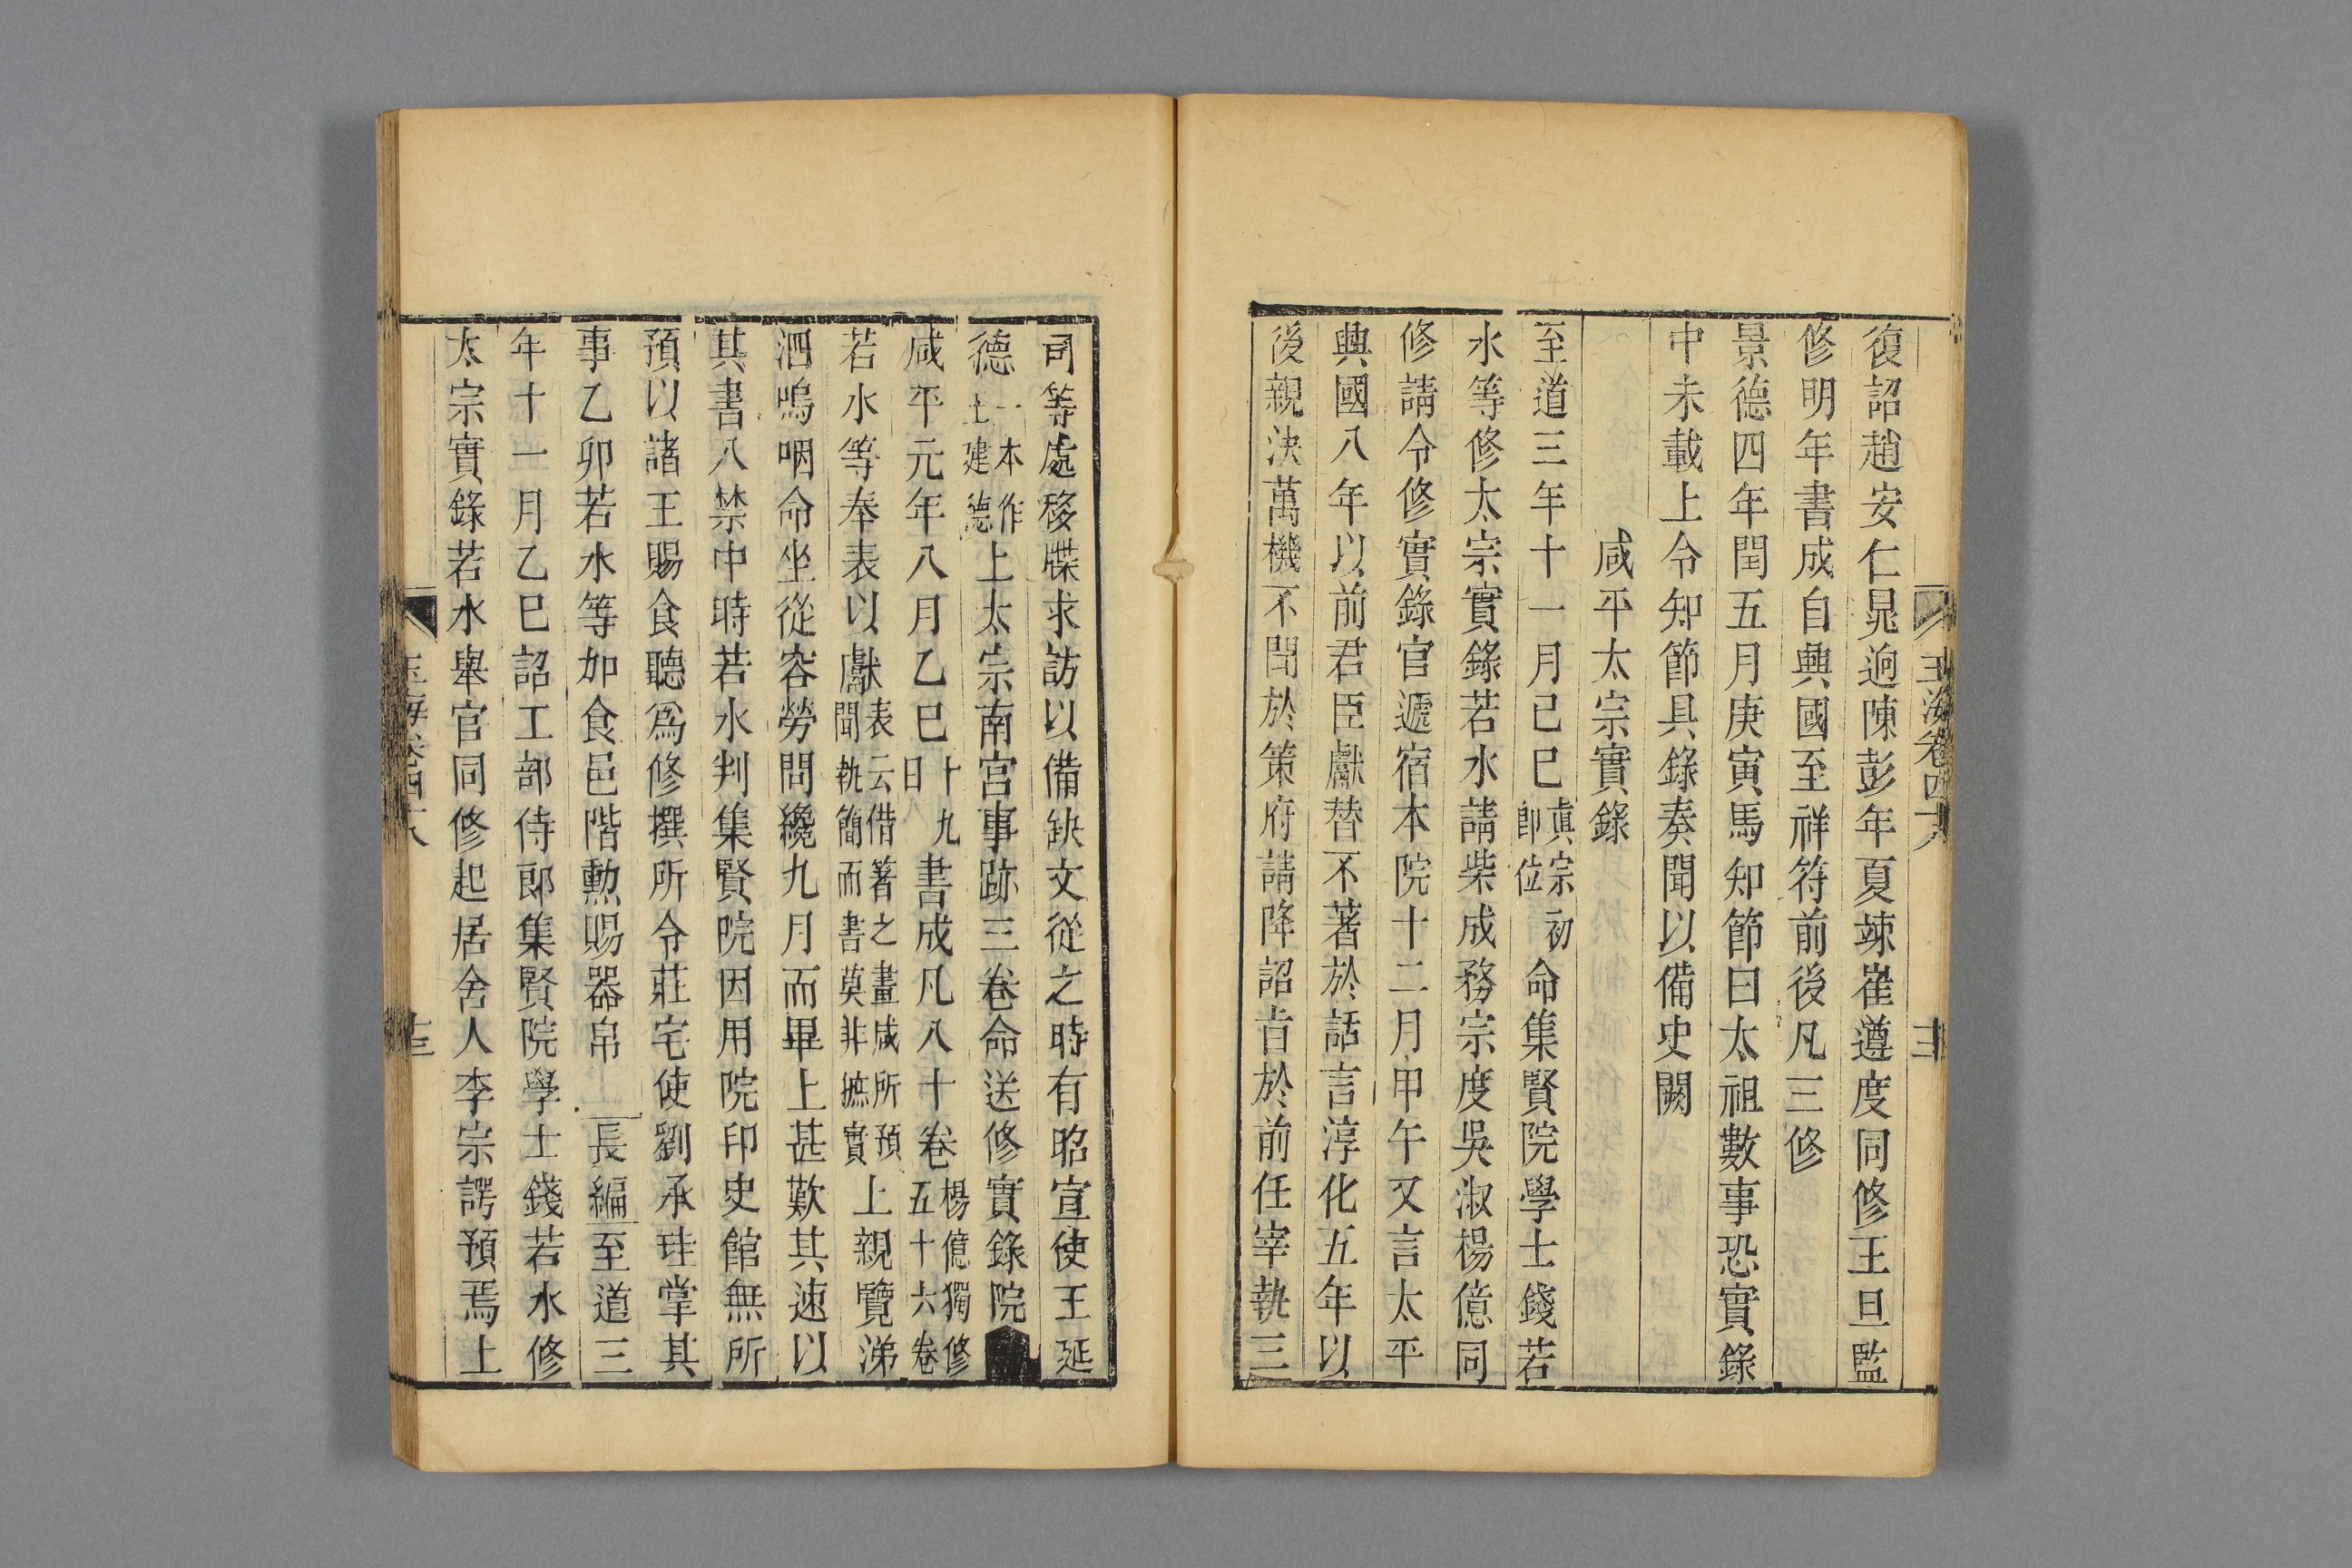 玉海卷四十八
復詔趙安仁晁逈陳彭年夏竦崔遵度同修王旦監
修明年書成自興國至祥符前後凡三修
景德四年閏五月庚寅馬知節曰太祖數事恐實錄
中未載上令知節具錄奏聞以備史闕
咸平太宗實錄
至道三年十一月己巳眞宗初卽位命集賢院學士錢若
水等修太宗實錄若水請柴成務宗度吳淑楊億同
修請令修實錄官遞宿本院十二月甲午又言太平
興國八年以前君臣獻替不著於話言淳化五年以
後親決萬機不聞於策府請降詔旨於前任宰執三
司等處移牒求訪以備缺文從之時有昭宣使王延
德一本作士建德上太宗南宫事跡三卷命送修實錄院
咸平元年八月乙巳十九日書成凡八十卷楊億獨修五十六卷
若水等奉表以獻表云借箸之畫咸所預聞執簡而書莫非摭實上親覽涕
泗嗚咽命坐從容勞問纔九月而畢上甚歎其速以
其書入禁中時若水判集賢院因用院印史館無所
預以諸王賜食聽爲修撰所令莊宅使劉承珪掌其
事乙卯若水等加食邑階勲賜器帛長編至道三
年十一月乙巳詔工部侍郎集賢院學士錢若水修
太宗實錄若水舉官同修起居舍人李宗諤預焉上
玉海卷四十八
十三